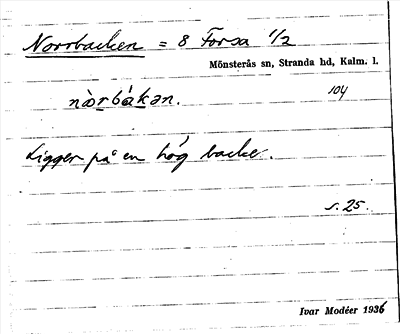 Norrbacken = 8 Forsa 1/2
Mönsterås sn, Stranda hd, Kalm. l.
nòrbàkən. 104
Ligger på en hög backe.
s. 25.
Ivar Modéer 1936